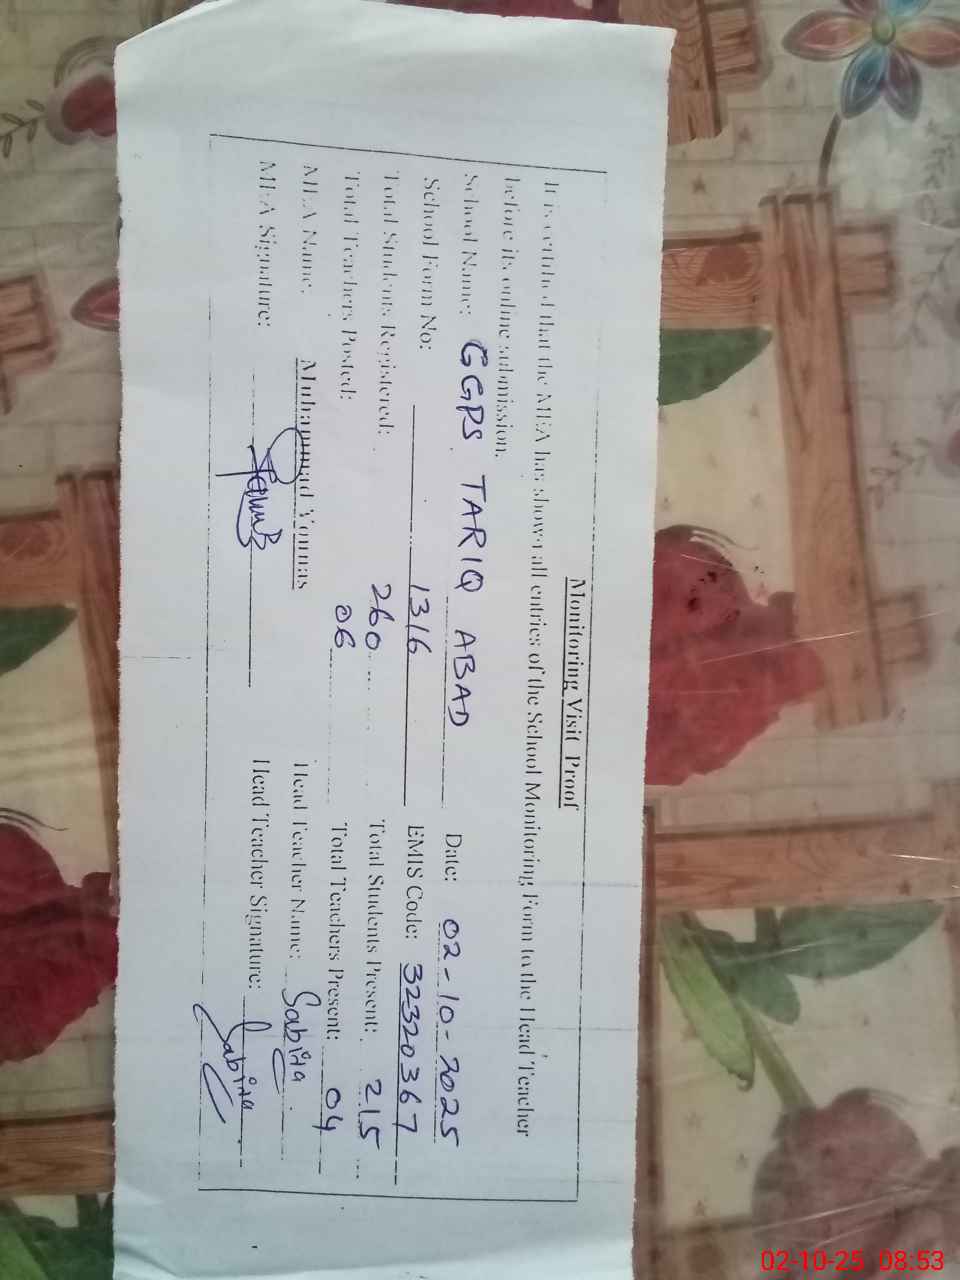 Monitoring Visit Proof
It is certified that the MEA has shown all entries of the School Monitoring Form to the Head Teacher
before its online submission.
School Name: GGPS TARIQ ABAD Date: 02-10-2025
School Form No: 1316 EMIS Code: 32320367
Total Students Registered: 260 Total Students Present: 215
Total Teachers Posted: 06 Total Teachers Present: 04
MEA Name: Muhammad Younas Head Teacher Name: Sabina
MEA Signature: Head Teacher Signature: Sabina
02-10-25 08:53